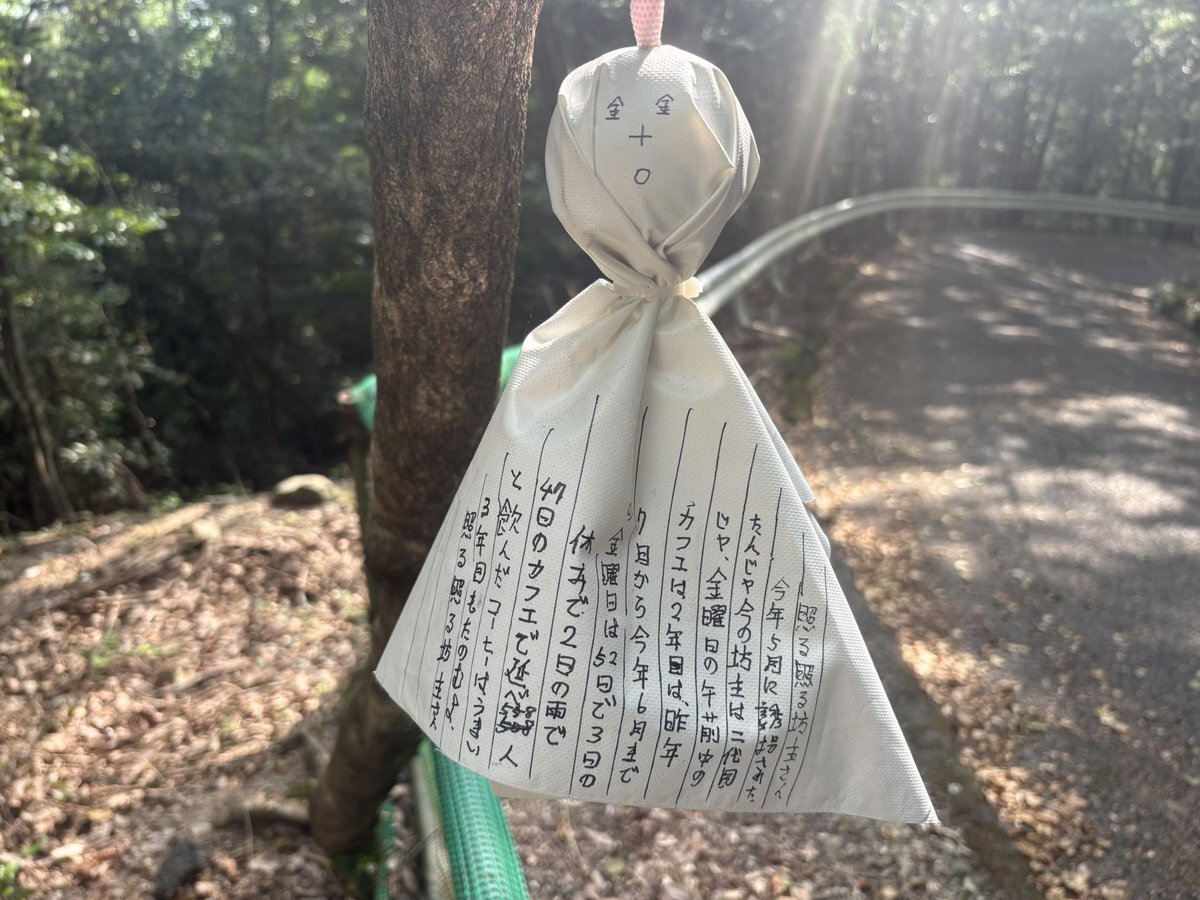 金 金
十
o
照る照る坊主さん
今年5月に誘拐された
たんじゃ今の坊主は二代目
じゃ、金曜日の午前中の
カフェは2年目は、昨年
7月から今年6月まで
金曜日は52日で3日の
休みで2日の雨で
47日のカフェで延べ人
と飲んだコーヒーはうまい
3年目もたのむよ、
照る照る坊主